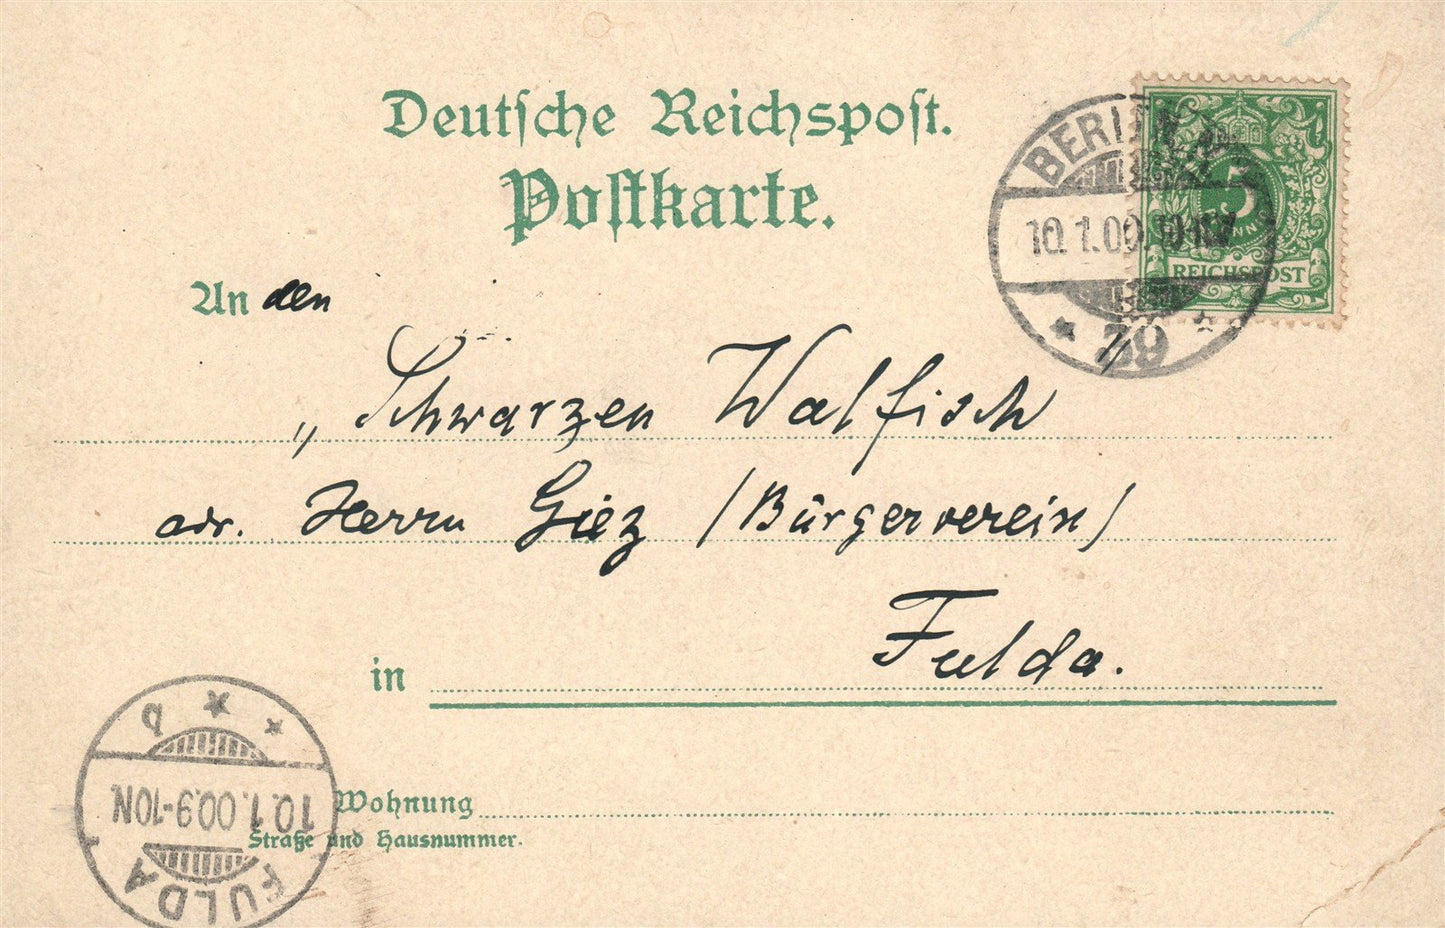 Deutsche Reichspost.
Postkarte.
BERLIN
10.1.00.10-11V.
39
5
REICHSPOST
An den
„Schwarzen Walfisch
adr. Herrn Giez (Bürgerverein)
in Fulda.
Wohnung
Straße und Hausnummer.
FULDA
10.1.00.9-10N.